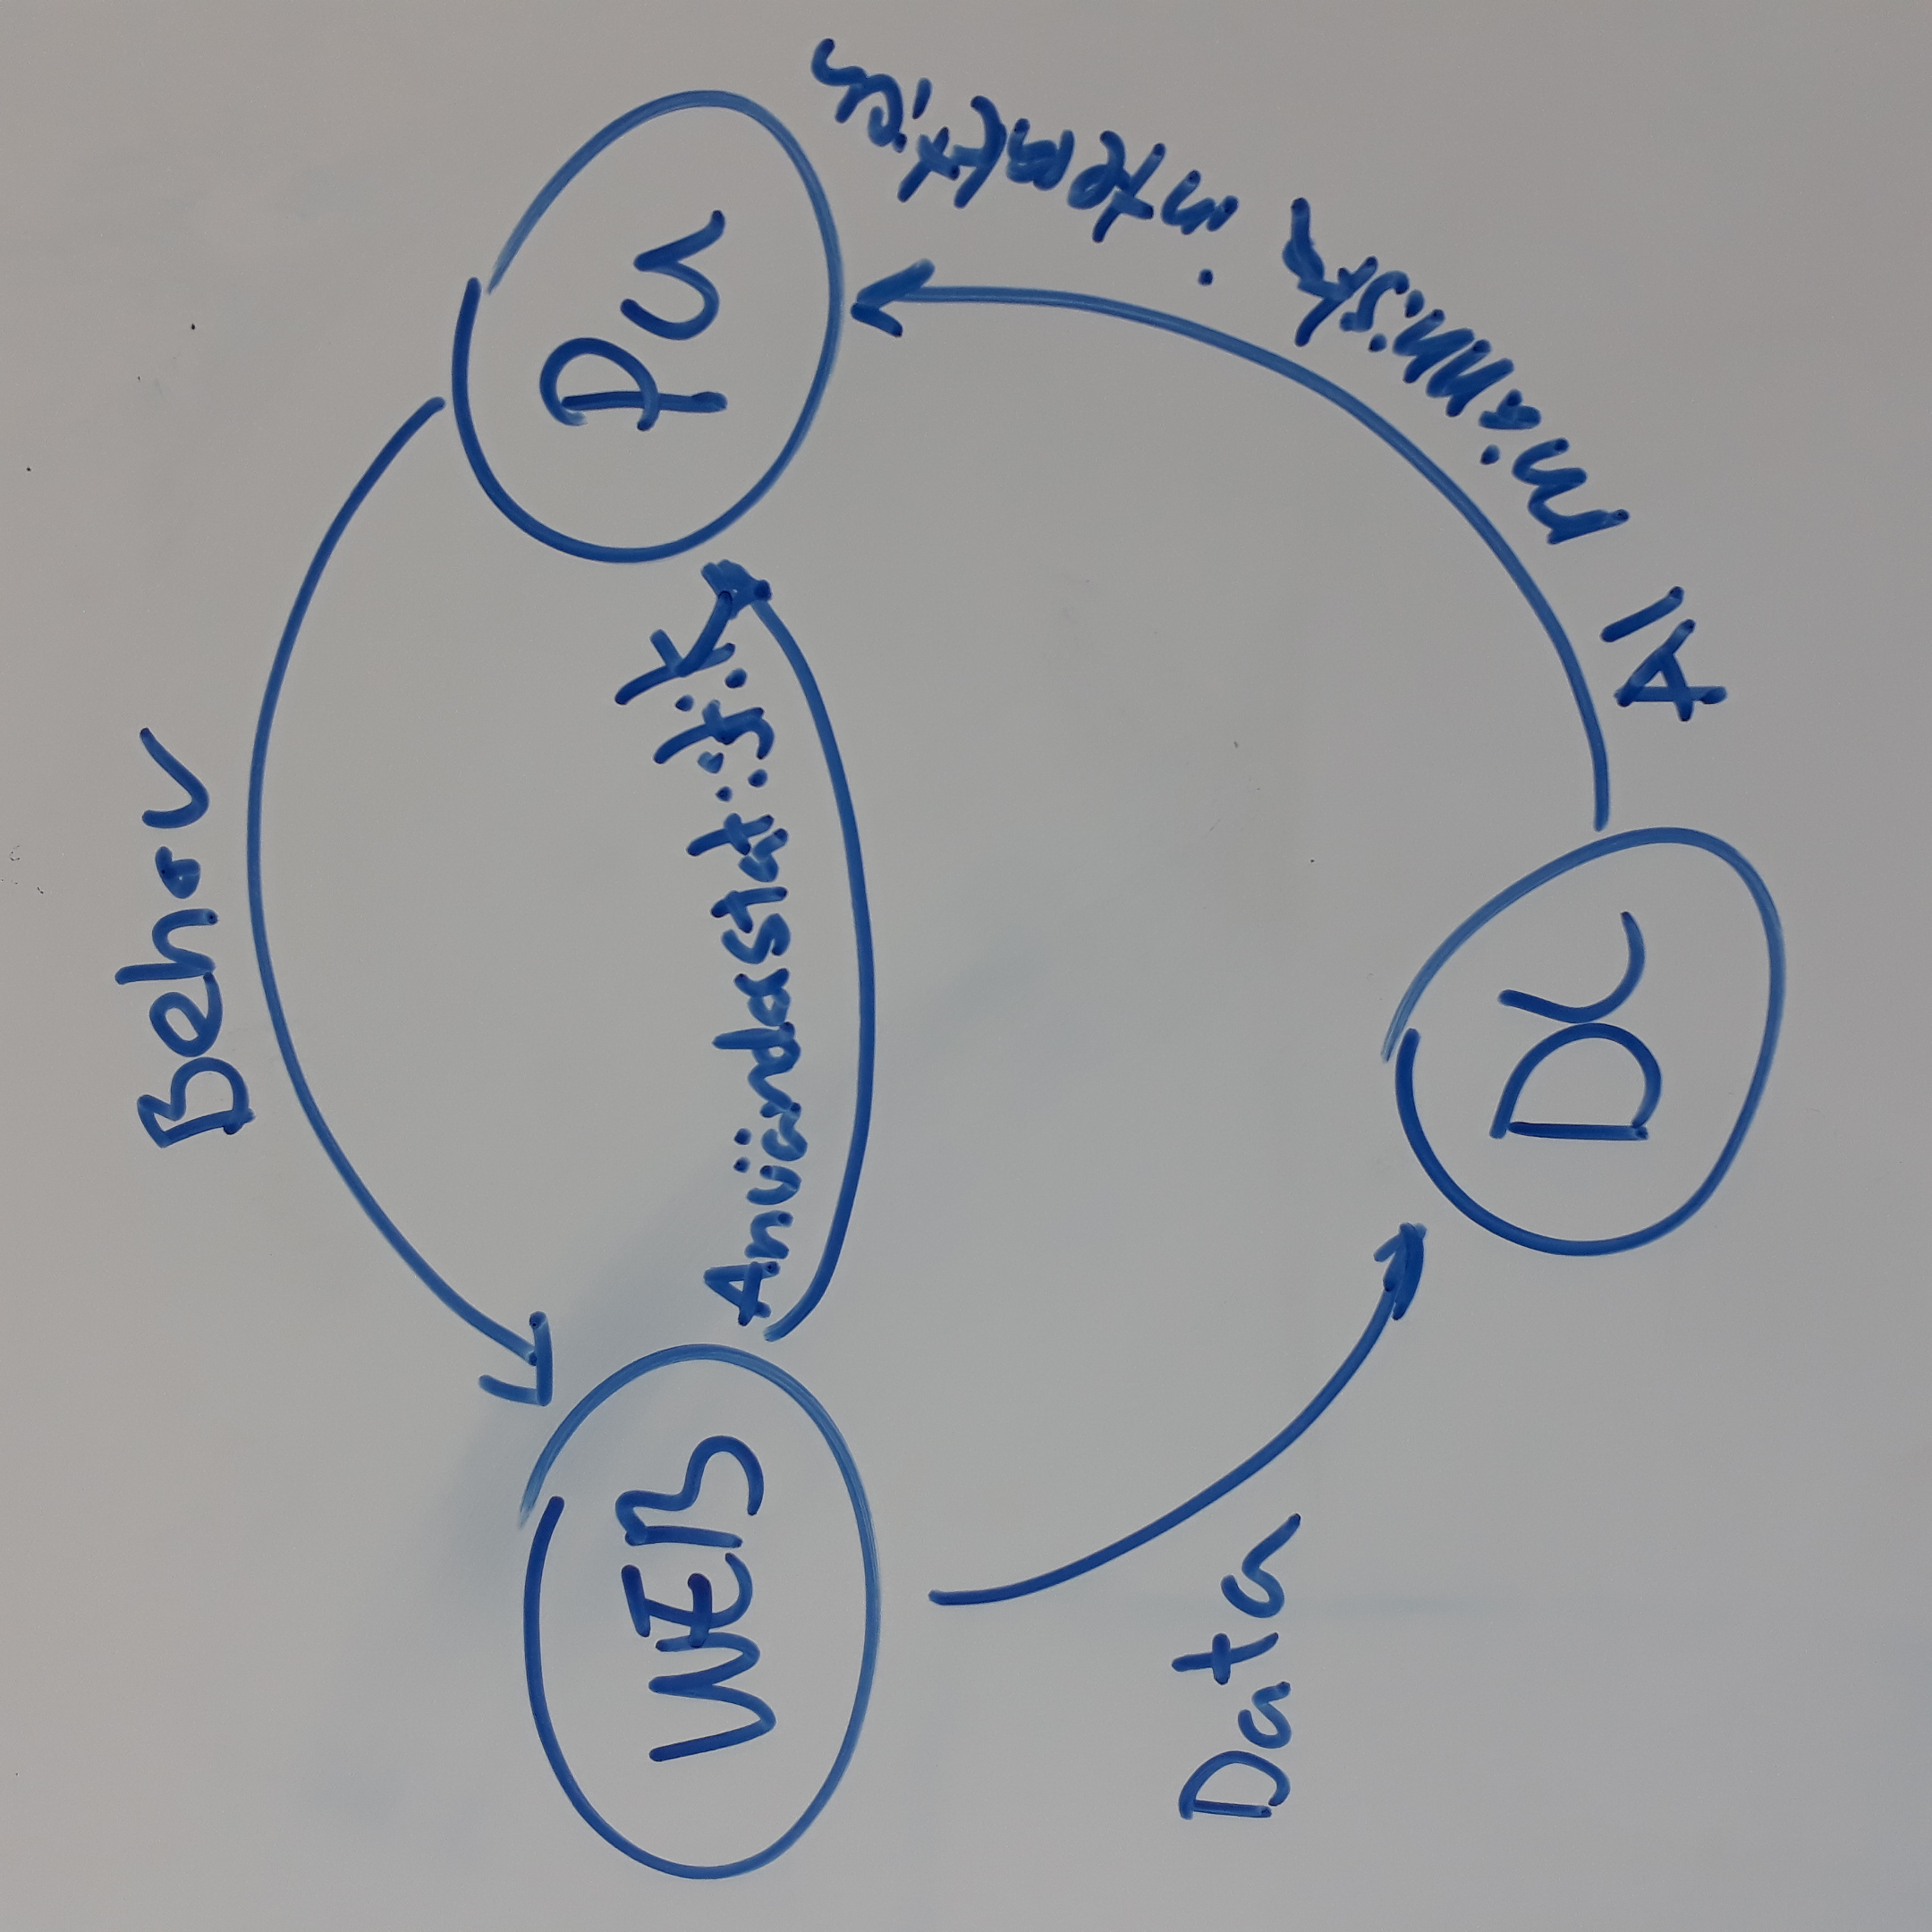 Behov
WEB
Pu
Användastatistik
Data
DC
AI människa interaktion